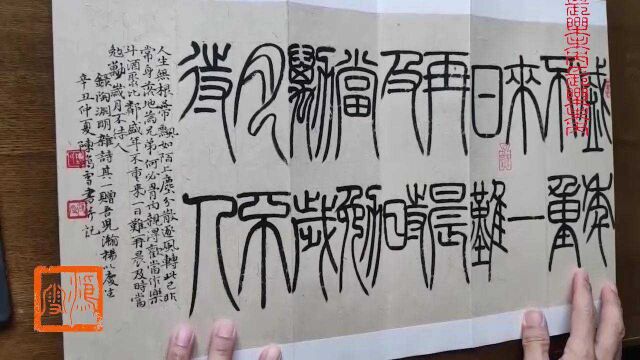 盛年
不重
來一
日難
再晨
及時
當勉
勵歲
月不
待人
人生無根蒂飄如陌上塵分散逐風轉此已非
常身落地為兄弟何必骨肉親得歡當作樂
斗酒聚比鄰盛年不重來一日難再晨及時當
勉勵歲月不待人
錄陶淵明雜詩其一贈吾兒瀚楊以慶生
辛丑仲夏陳雪書并記